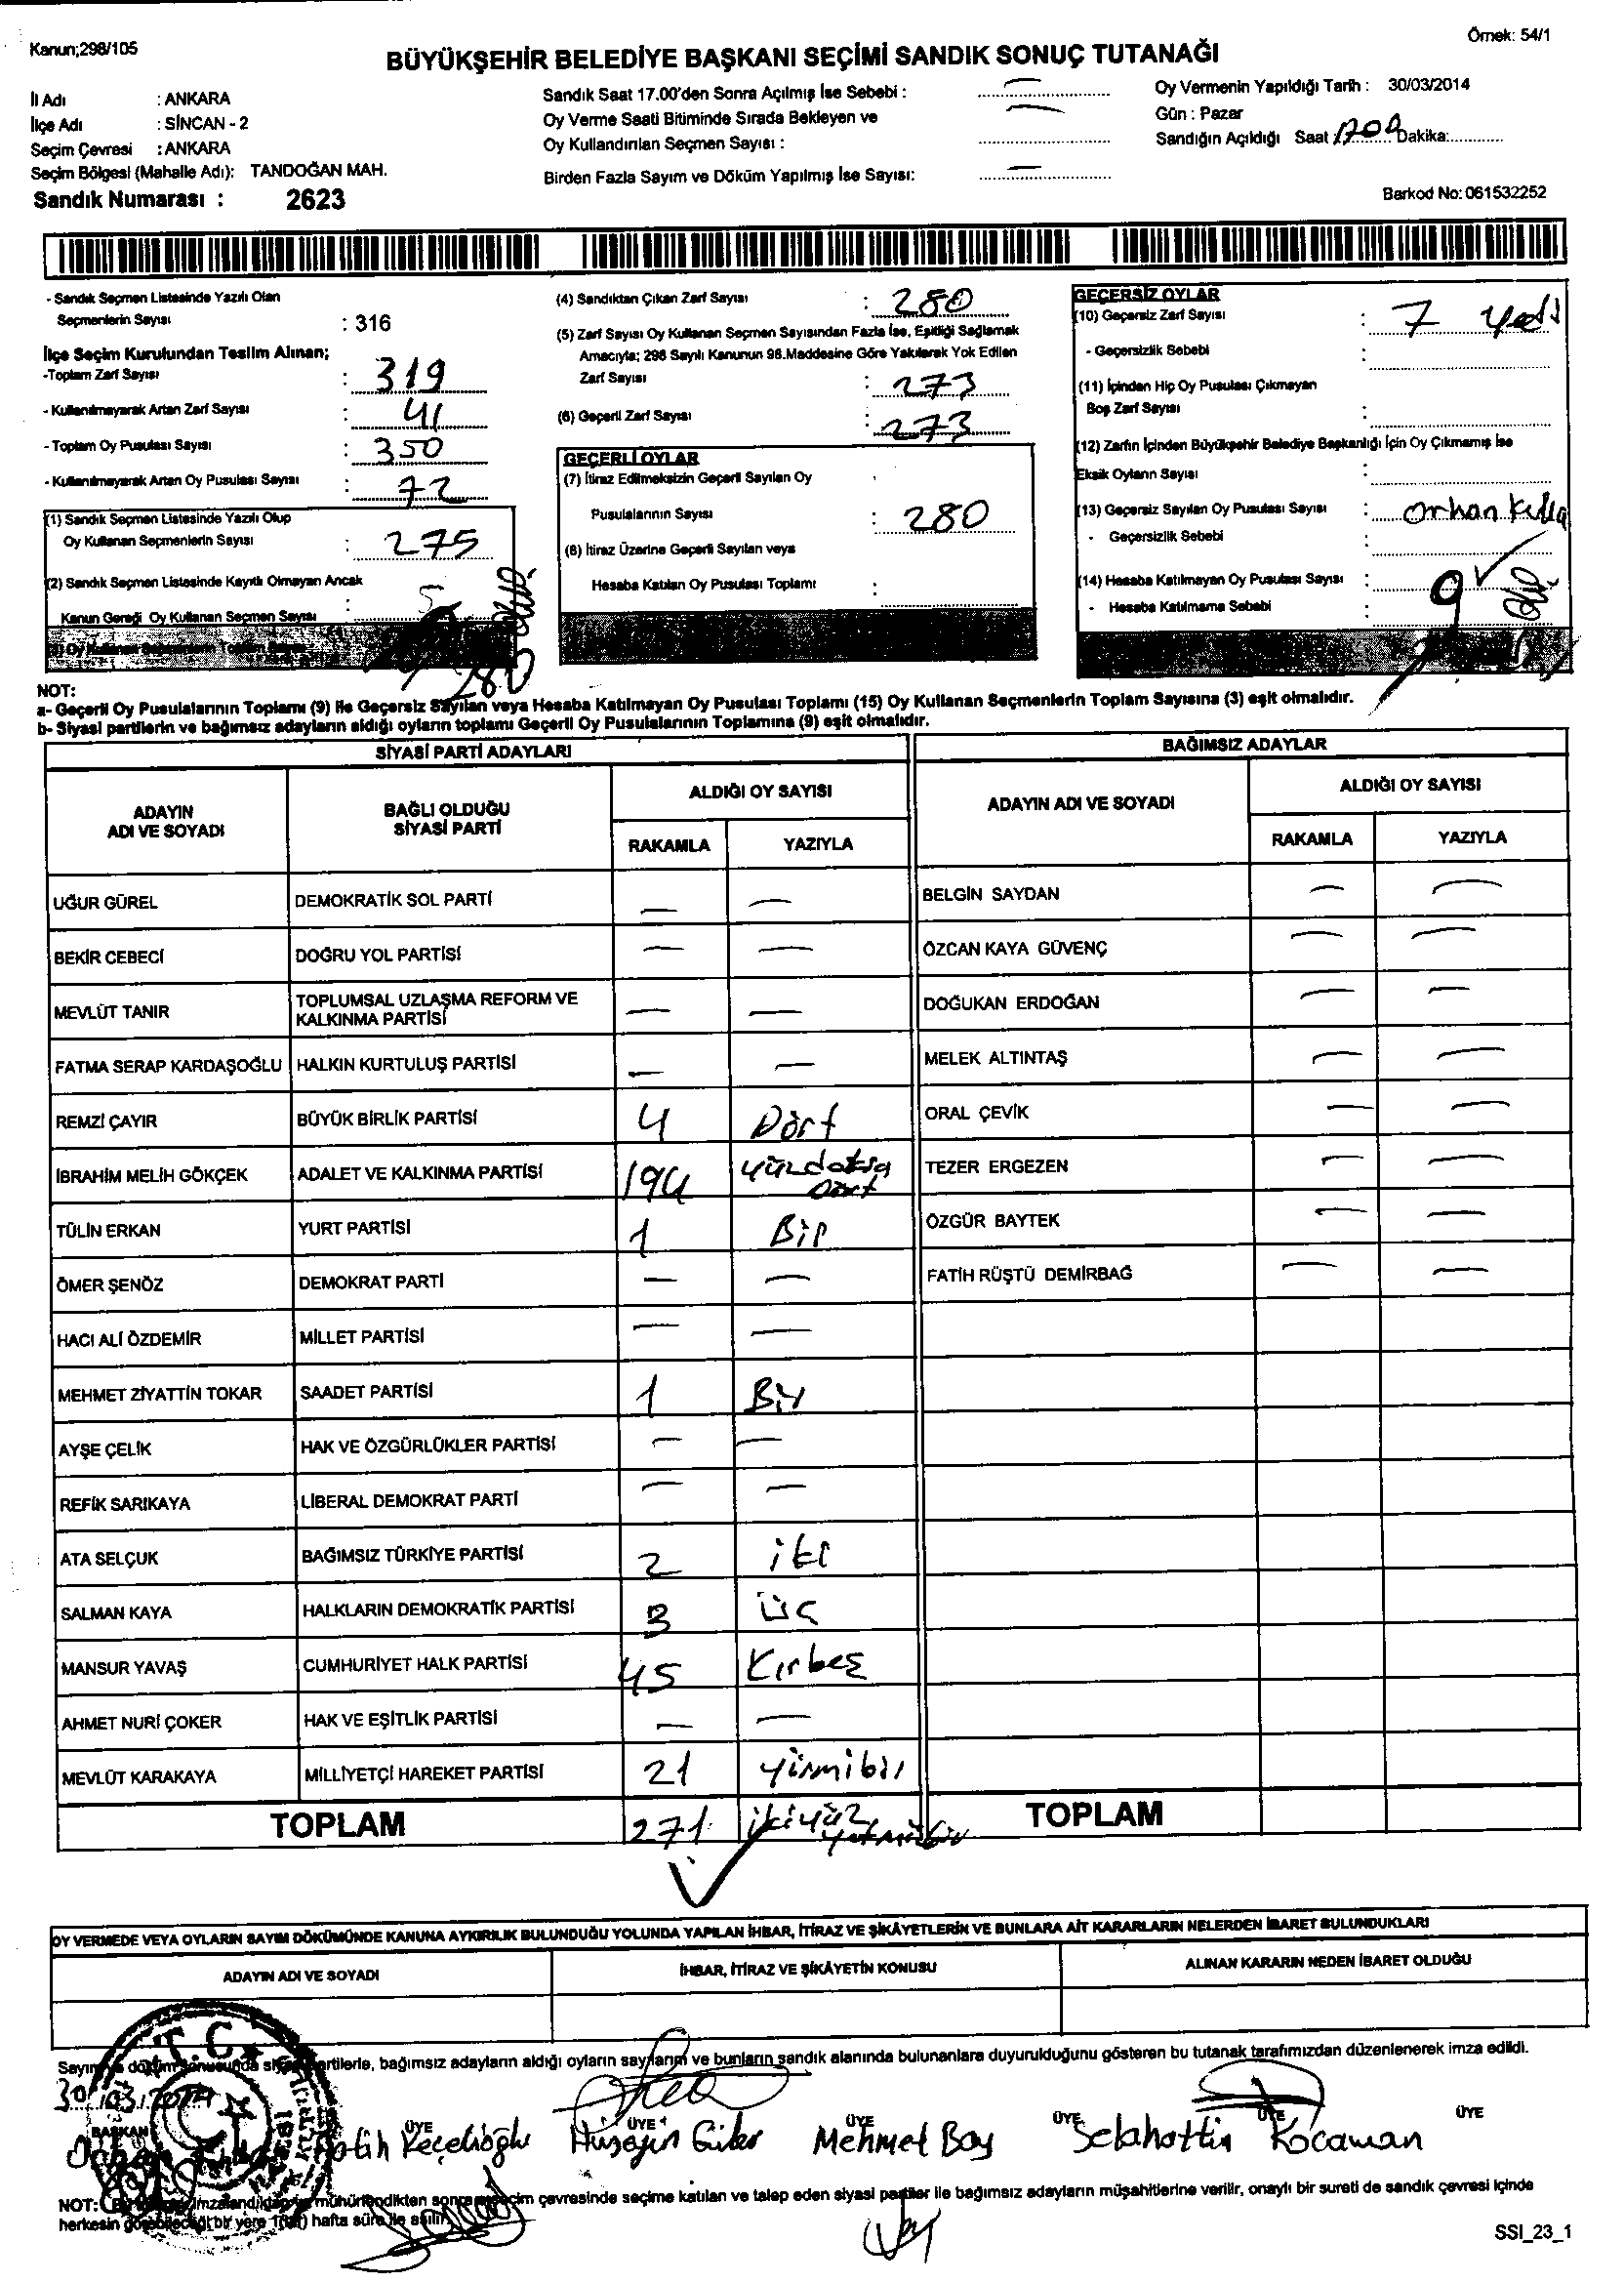 Kanun;298/105
Örnek: 54/1
BÜYÜKŞEHİR BELEDİYE BAŞKANI SEÇİMİ SANDIK SONUÇ TUTANAĞI
İl Adı : ANKARA
İlçe Adı : SİNCAN - 2
Seçim Çevresi : ANKARA
Seçim Bölgesi (Mahalle Adı): TANDOĞAN MAH.
Sandık Numarası : 2623
Sandık Saat 17.00'den Sonra Açılmış İse Sebebi :
Oy Verme Saati Bitiminde Sırada Bekleyen ve
Oy Kullandırılan Seçmen Sayısı :
Birden Fazla Sayım ve Döküm Yapılmış İse Sayısı:
Oy Vermenin Yapıldığı Tarih : 30/03/2014
Gün : Pazar
Sandığın Açıldığı Saat : Dakika:
Barkod No: 061532252
- Sandık Seçmen Listesinde Yazılı Olan
Seçmenlerin Sayısı : 316
İlçe Seçim Kurulundan Teslim Alınan;
-Toplam Zarf Sayısı : 319
- Kullanılmayarak Artan Zarf Sayısı : 41
- Toplam Oy Pusulası Sayısı : 350
- Kullanılmayarak Artan Oy Pusulası Sayısı : 72
(1) Sandık Seçmen Listesinde Yazılı Olup
Oy Kullanan Seçmenlerin Sayısı : 275
(2) Sandık Seçmen Listesinde Kayıtlı Olmayan Ancak
Kanun Gereği Oy Kullanan Seçmen Sayısı : 5
(3) Oy Kullanan Seçmenlerin Toplam Sayısı
280
(4) Sandıktan Çıkan Zarf Sayısı : 280
(5) Zarf Sayısı Oy Kullanan Seçmen Sayısından Fazla İse, Eşitliği Sağlamak
Amacıyla; 298 Sayılı Kanunun 98.Maddesine Göre Yakılarak Yok Edilen
Zarf Sayısı : 273
(6) Geçerli Zarf Sayısı : 273
GEÇERLİ OYLAR
(7) İtiraz Edilmeksizin Geçerli Sayılan Oy
Pusulalarının Sayısı : 280
(8) İtiraz Üzerine Geçerli Sayılan veya
Hesaba Katılan Oy Pusulası Toplamı :
GEÇERSİZ OYLAR
(10) Geçersiz Zarf Sayısı : 7 yedi
- Geçersizlik Sebebi :
(11) İçinden Hiç Oy Pusulası Çıkmayan
Boş Zarf Sayısı :
(12) Zarfın İçinden Büyükşehir Belediye Başkanlığı İçin Oy Çıkmamış İse
Eksik Oyların Sayısı :
(13) Geçersiz Sayılan Oy Pusulası Sayısı : Orhan
- Geçersizlik Sebebi :
(14) Hesaba Katılmayan Oy Pusulası Sayısı : 9
- Hesaba Katılmama Sebebi :
NOT:
a- Geçerli Oy Pusulalarının Toplamı (9) ile Geçersiz Sayılan veya Hesaba Katılmayan Oy Pusulası Toplamı (15) Oy Kullanan Seçmenlerin Toplam Sayısına (3) eşit olmalıdır.
b- Siyasi partilerin ve bağımsız adayların aldığı oyların toplamı Geçerli Oy Pusulalarının Toplamına (9) eşit olmalıdır.
SİYASİ PARTİ ADAYLARI
ADAYIN ADI VE SOYADI
BAĞLI OLDUĞU SİYASİ PARTİ
ALDIĞI OY SAYISI
RAKAMLA YAZIYLA
UĞUR GÜREL DEMOKRATİK SOL PARTİ — —
BEKİR CEBECİ DOĞRU YOL PARTİSİ — —
MEVLÜT TANIR TOPLUMSAL UZLAŞMA REFORM VE KALKINMA PARTİSİ — —
FATMA SERAP KARDAŞOĞLU HALKIN KURTULUŞ PARTİSİ — —
REMZİ ÇAYIR BÜYÜK BİRLİK PARTİSİ 4 Dört
İBRAHİM MELİH GÖKÇEK ADALET VE KALKINMA PARTİSİ 194 yüzdoksa Dört
TÜLİN ERKAN YURT PARTİSİ 1 Bir
ÖMER ŞENÖZ DEMOKRAT PARTİ — —
HACI ALİ ÖZDEMİR MİLLET PARTİSİ — —
MEHMET ZİYATTİN TOKAR SAADET PARTİSİ 1 Bir
AYŞE ÇELİK HAK VE ÖZGÜRLÜKLER PARTİSİ — —
REFİK SARIKAYA LİBERAL DEMOKRAT PARTİ — —
ATA SELÇUK BAĞIMSIZ TÜRKİYE PARTİSİ 2 iki
SALMAN KAYA HALKLARIN DEMOKRATİK PARTİSİ 3 üç
MANSUR YAVAŞ CUMHURİYET HALK PARTİSİ 45 Kırbeş
AHMET NURİ ÇOKER HAK VE EŞİTLİK PARTİSİ — —
MEVLÜT KARAKAYA MİLLİYETÇİ HAREKET PARTİSİ 21 yirmibir
TOPLAM 271 ikiyüz yetmişbir
BAĞIMSIZ ADAYLAR
ADAYIN ADI VE SOYADI
ALDIĞI OY SAYISI
RAKAMLA YAZIYLA
BELGİN SAYDAN — —
ÖZCAN KAYA GÜVENÇ — —
DOĞUKAN ERDOĞAN — —
MELEK ALTINTAŞ — —
ORAL ÇEVİK — —
TEZER ERGEZEN — —
ÖZGÜR BAYTEK — —
FATİH RÜŞTÜ DEMİRBAĞ — —
TOPLAM
OY VERMEDE VEYA OYLARIN SAYIM DÖKÜMÜNDE KANUNA AYKIRILIK BULUNDUĞU YOLUNDA YAPILAN İHBAR, İTİRAZ VE ŞİKÂYETLERİN VE BUNLARA AİT KARARLARIN NELERDEN İBARET BULUNDUKLARI
ADAYIN ADI VE SOYADI
İHBAR, İTİRAZ VE ŞİKÂYETİN KONUSU
ALINAN KARARIN NEDEN İBARET OLDUĞU
T.C.
Sayım ve döküm sonucunda siyasi partilerle, bağımsız adayların aldığı oyların sayılarını ve bunların sandık alanında bulunanlara duyurulduğunu gösteren bu tutanak tarafımızdan düzenlenerek imza edildi.
30/03/2014
BAŞKAN ÜYE ÜYE ÜYE ÜYE ÜYE ÜYE
Fatih Keçelioğlu Hüseyin Mehmet Boy Selahattin Kocaman
NOT: imzalandıktan ve mühürlendikten sonra seçim çevresinde seçime katılan ve talep eden siyasi partiler ile bağımsız adayların müşahitlerine verilir, onaylı bir sureti de sandık çevresi içinde
herkesin görebileceği bir yere 1(bir) hafta süre ile asılır.
SSI_23_1